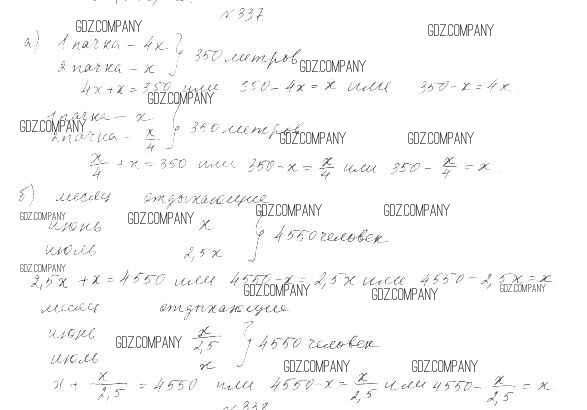 №337
GDZ.COMPANY GDZ.COMPANY
а) 1 пачка – 4x
2 пачка – x } 350 метров
GDZ.COMPANY
4x + x = 350 или 350 – 4x = x или 350 – x = 4x
GDZ.COMPANY
1 пачка – x
GDZ.COMPANY
2 пачка – x/4 } 350 метров
GDZ.COMPANY GDZ.COMPANY
x/4 + x = 350 или 350 – x = x/4 или 350 – x/4 = x
б) месяц отдыхающие
GDZ.COMPANY GDZ.COMPANY GDZ.COMPANY GDZ.COMPANY
июнь x
июль 2,5x } 4550 человек
GDZ.COMPANY
2,5x + x = 4550 или 4550 – x = 2,5x или 4550 – 2,5x = x
GDZ.COMPANY GDZ.COMPANY GDZ.COMPANY
месяц отдыхающие
июнь x/2,5
GDZ.COMPANY
июль x } 4550 человек
GDZ.COMPANY GDZ.COMPANY
x + x/2,5 = 4550 или 4550 – x = x/2,5 или 4550 – x/2,5 = x
№338